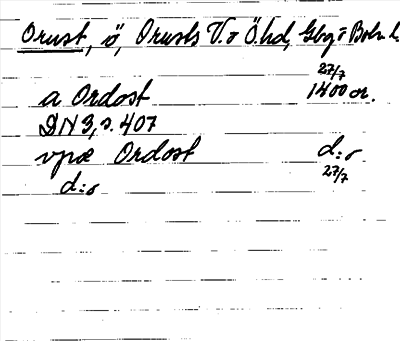 Orust, ö, Orusts V. o Ö. hd, Gbg o Boh. l.
27/7
a Ordost 1400 or.
DN 3, s. 407
vpæ Ordost d:o
d:o 27/7